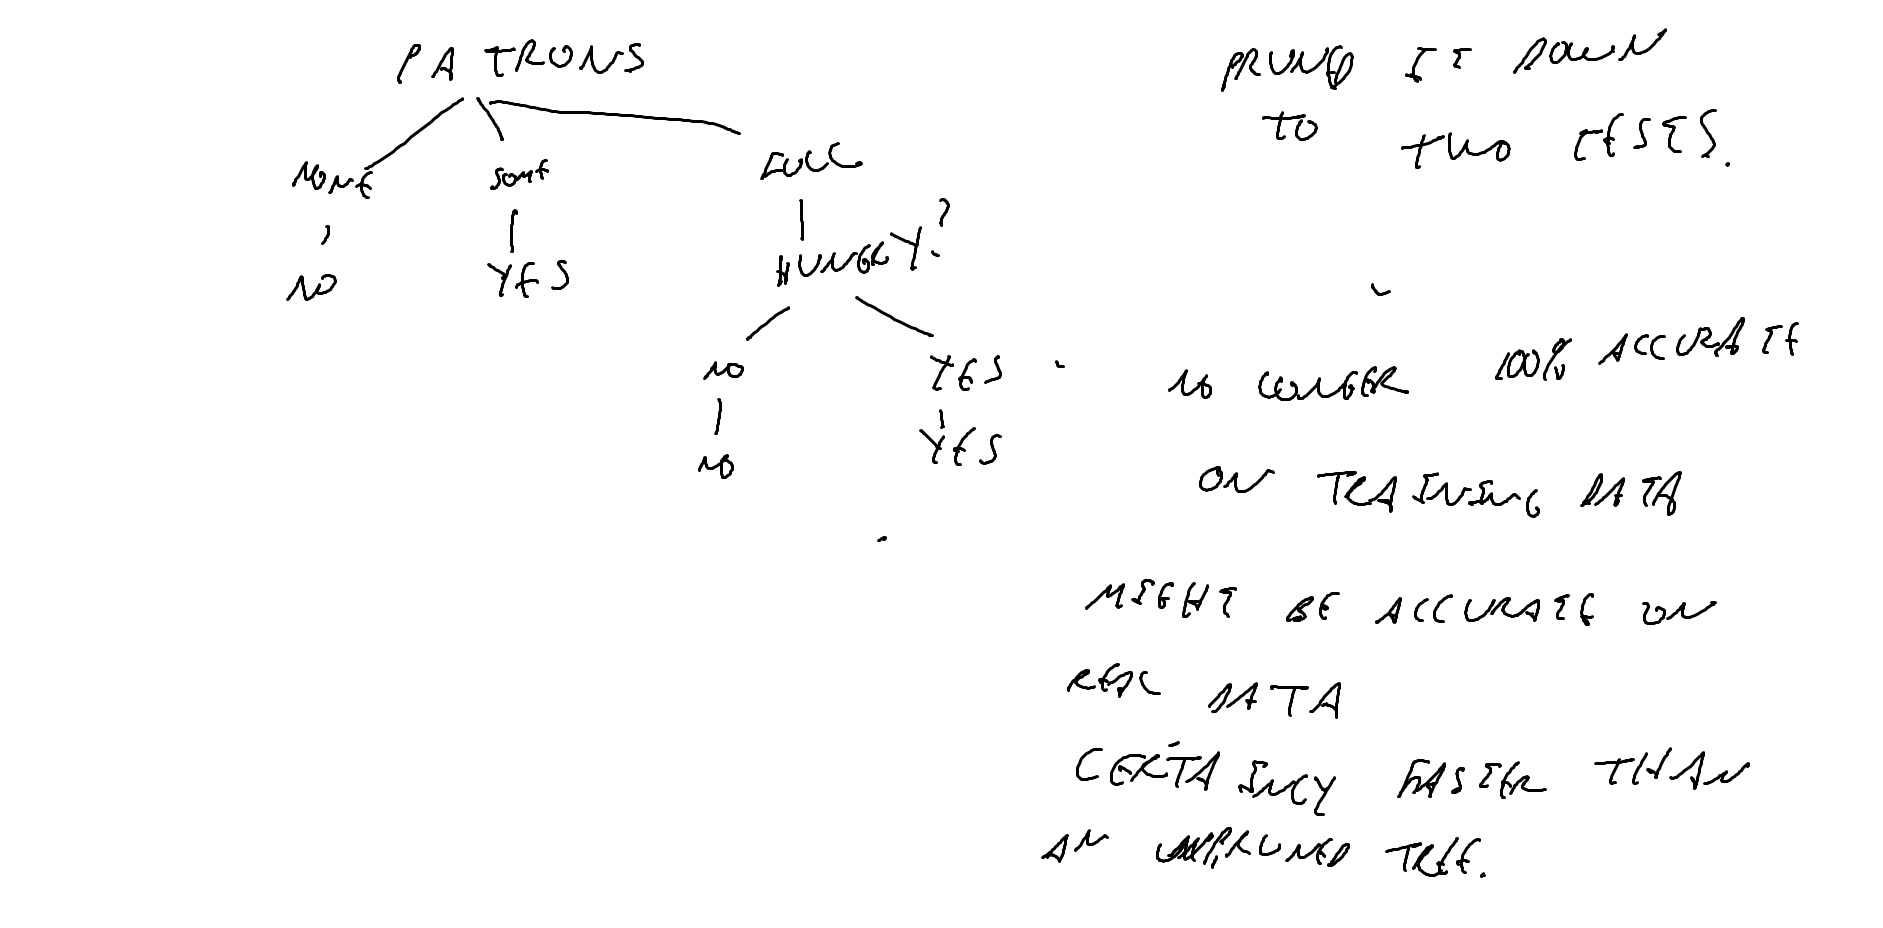 PATRONS
NONE SOME FULL
NO YES HUNGRY?
NO YES
NO YES
PRUNED IT DOWN
TO TWO TESTS.
NO LONGER 100% ACCURATE
ON TRAINING DATA
MIGHT BE ACCURATE ON
REAL DATA
CERTAINLY FASTER THAN
AN UNPRUNED TREE.